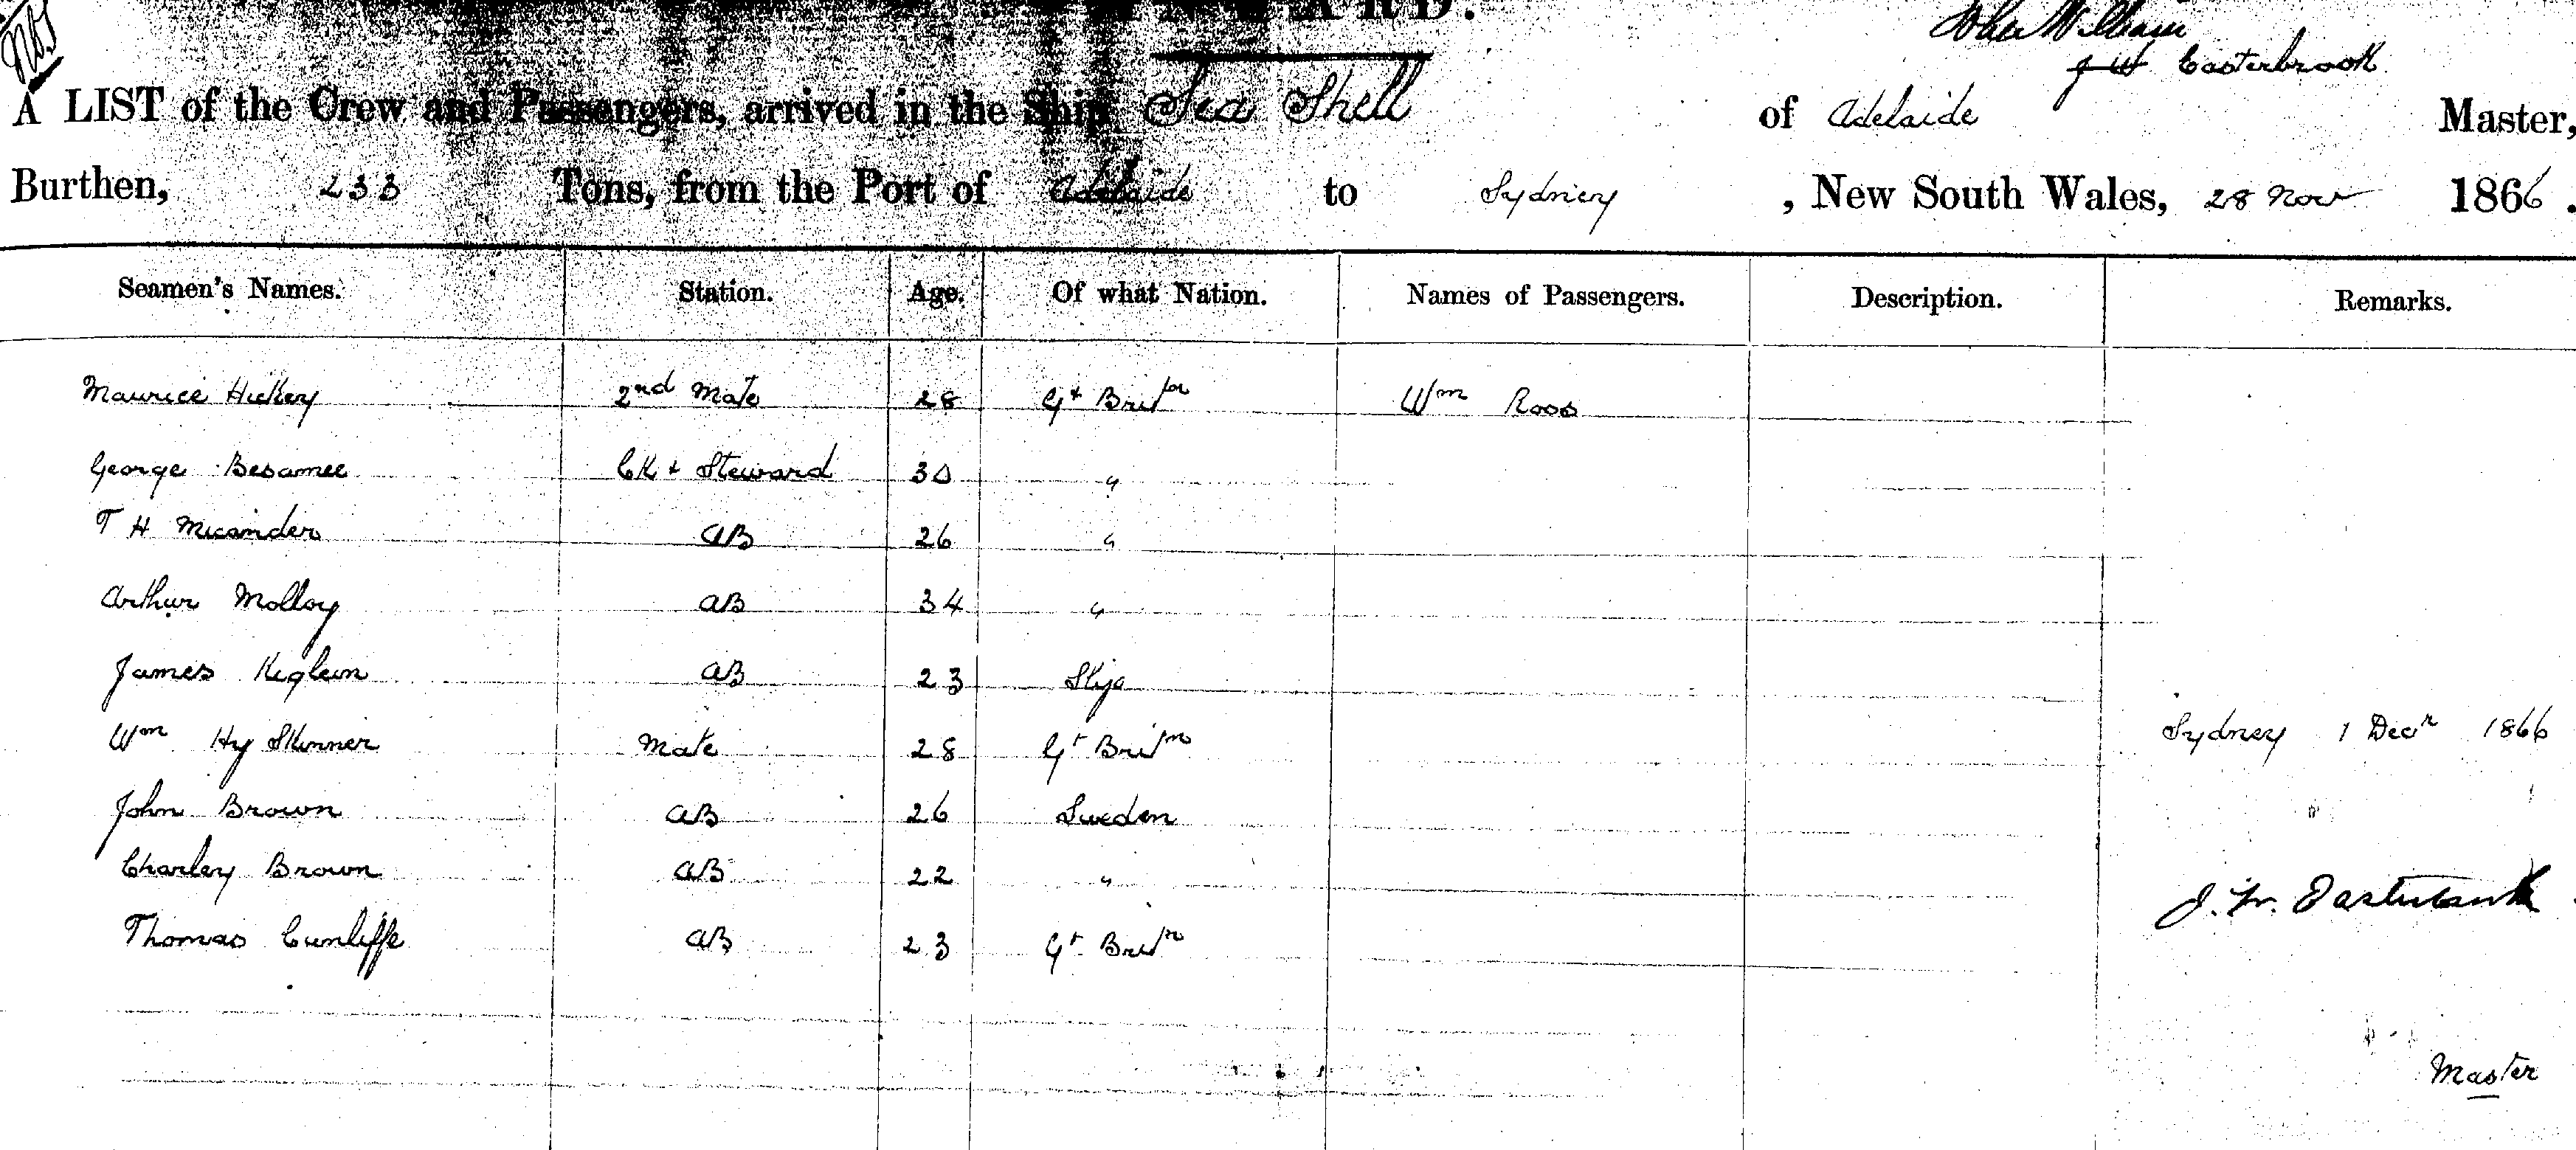 John William
J W Easterbrook
A LIST of the Crew and Passengers, arrived in the Ship Sea Shell of Adelaide Master,
Burthen, 233 Tons, from the Port of Adelaide to Sydney , New South Wales, 28 Nov 1866 .
Seamen's Names. Station. Age. Of what Nation. Names of Passengers. Description. Remarks.
Maurice Hickey 2nd Mate 28 Gt Britn Wm Ross
George Besamee Ck + Steward 30 "
T H Micander AB 26 "
Arthur Molloy AB 34 "
James AB 23
Wm Hy Skinner Mate 28 Gt Britn Sydney 1 Decr 1866
John Brown AB 26 Sweden
Charley Brown AB 22 "
J. W. Easterbrook
Thomas Cunliffe AB 23 Gt Britn
Master